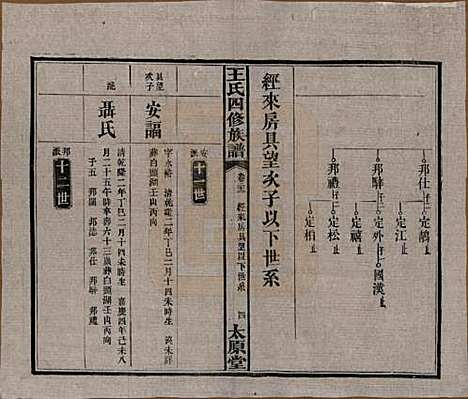 邦仕 定鵠
定江
邦驊 定外 國漢
定禧
邦禮 定松
定柏
經來房具望次子以下世系
王氏四修族譜
卷三 經來房具望以下世系 四
太原堂
安派
十一世
具望次子
安謳
字永裕 清乾隆二年丁巳二月十四未時生 歿未詳
葬白頭湖壬山丙向
配
聶氏
清乾隆二年丁巳二月十四未時生 嘉慶四年己未八
月二十五午時壽六十三歲葬白頭湖壬山丙向
子五 邦 邦 邦仕 邦驊 邦禮
邦派
十二世